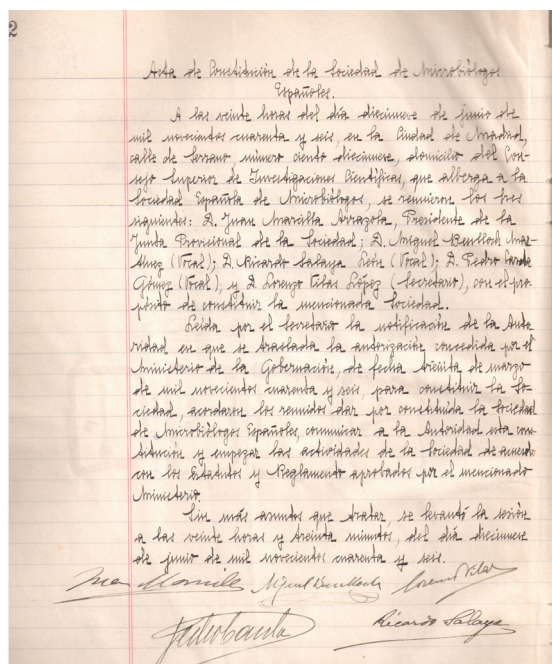 2
Acta de Constitución de la Sociedad de Microbiólogos
Españoles.
A las veinte horas del día diecinueve de junio de
mil novecientos cuarenta y seis, en la Ciudad de Madrid,
calle de Serrano número ciento diecinueve, domicilio del Con-
sejo Superior de Investigaciones Científicas, que alberga a la
Sociedad Española de Microbiólogos, se reunieron los Sres
siguientes: D. Juan Marcilla Arrazola, Presidente de la
Junta Provisional de la Sociedad; D. Miguel Benlloch Mar-
tínez (Vocal); D. Ricardo Salaya León (Vocal); D. Pedro
Gómez (Vocal); y D. Lorenzo Vilas López (Secretario), con el pro-
pósito de constituir la mencionada Sociedad.
Leída por el Secretario la notificación de la Auto-
ridad en que se traslada la autorización concedida por el
Ministerio de la Gobernación, de fecha treinta de marzo
de mil novecientos cuarenta y seis, para constituir la So-
ciedad, acordaron los reunidos dar por constituída la Sociedad
de Microbiólogos Españoles, comunicar a la Autoridad esta cons-
titución y empezar las actividades de la Sociedad de acuerdo
con los Estatutos y Reglamento aprobados por el mencionado
Ministerio.
Sin más asuntos que tratar, se levantó la sesión
a las veinte horas y treinta minutos, del día diecinueve
de junio de mil novecientos cuarenta y seis.
Juan Marcilla Miguel Benlloch Lorenzo Vilas
Ricardo Salaya